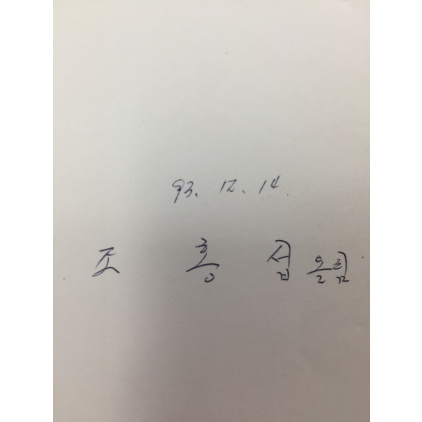 93. 12. 14.
조 홍 섭 올림